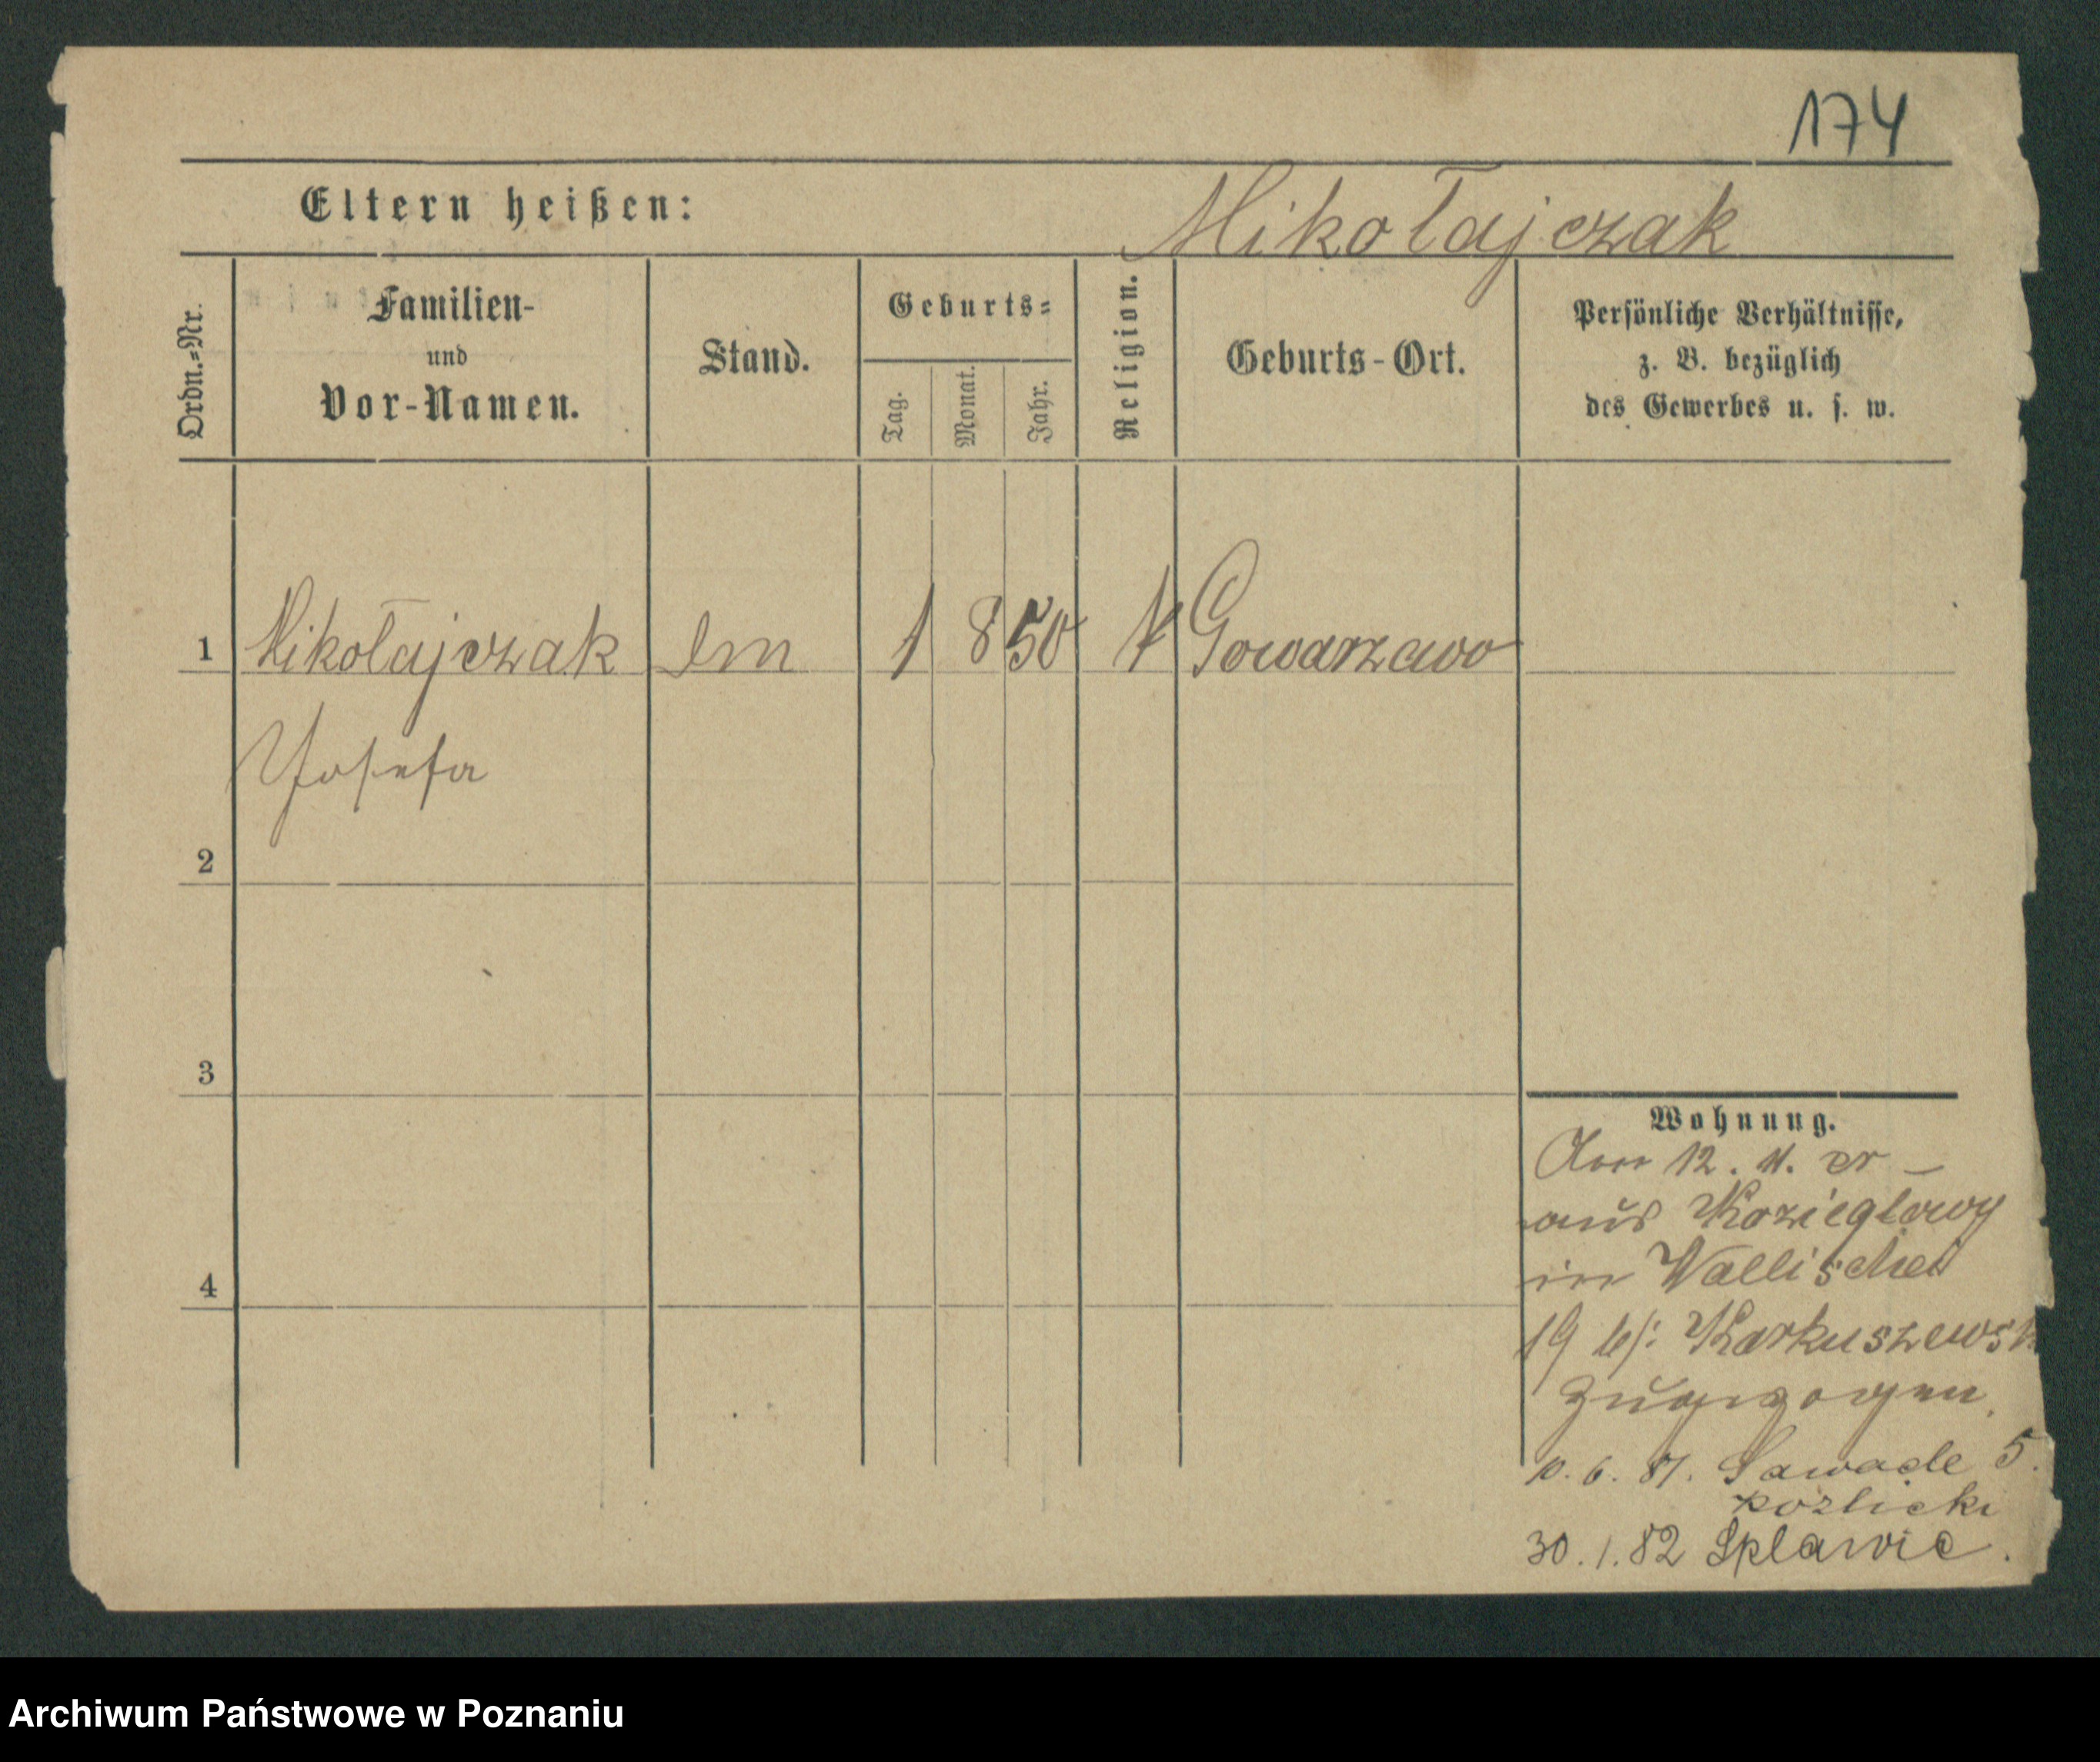 174
Eltern heißen: Mikołajczak
Ordn.=Nr.
Familien-
und
Vor-Namen.
Stand.
Geburts=
Tag.
Monat.
Jahr.
Religion.
Geburts-Ort.
Persönliche Verhältnisse,
z. B. bezüglich
des Gewerbes u. s. w.
1 Mikołajczak 1 8 50 k Gowarzewo
Josefa
2
3
4
Wohnung.
Am 12. 4. cr
aus Koziegłowy
in Wallischei
19 b/: Markuszewsk
zugezogen.
10. 6. 81. Sawade 5.
Kozlicki
30. 1. 82 Splawie.
Archiwum Państwowe w Poznaniu